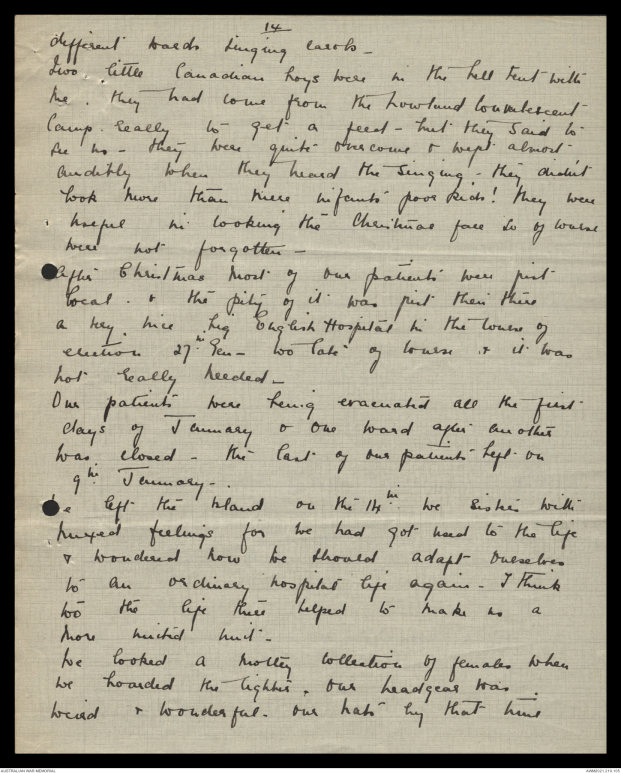 14
different wards singing carols -
Two little Canadian boys were in the bell tent with
me. they had come from the Rowland Convalescent
Camp. really to get a feed - but they said to
see us - they were quite overcome & wept almost
audibly when they heard the singing - they didn't
look more than mere infants poor kids! they were
useful in cooking the Christmas fare so of course
were not forgotten -
After Christmas most of our patients were just
local. & the pity of it was just then there
a very nice big English Hospital in the course of
erection 27th Gen - too late of course & it was
not really needed -
Our patients were being evacuated all the first
days of January & one ward after another
was closed - the last of our patients left on
9th January -.
We left the Island on the 14th we Sisters with
mixed feelings for we had got used to the life
& wondered how we should adapt ourselves
to an ordinary hospital life again - I think
too the life there helped to make us a
more united unit -
We looked a motley collection of females when
we boarded the lighter. Our headgear was
weird & wonderful - our hats by that time
AUSTRALIAN WAR MEMORIAL